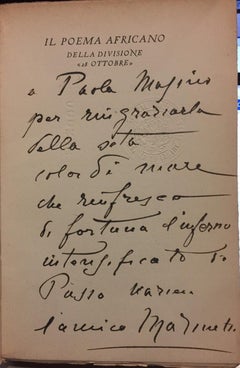 IL POEMA AFRICANO
DELLA DIVISIONE
«28 OTTOBRE»
a Paola Masino
per ringraziarla
della seta
color di mare
che rinfresca
di fortuna l'inferno
intensificato di
Passo
l'amico Marinetti